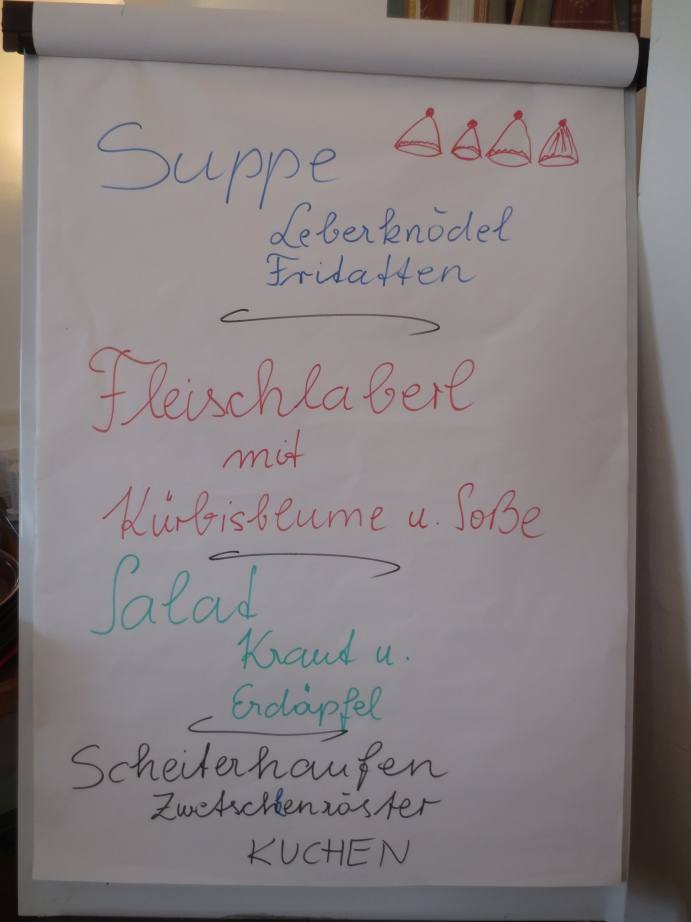 Suppe
Leberknödel
Fritatten
Fleischlaberl
mit
Kürbisblume u. Soße
Salat
Kraut u.
Erdäpfel
Scheiterhaufen
Zwetschkenröster
KUCHEN